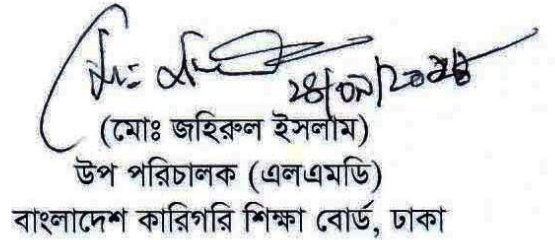 (মোঃ জহিরুল ইসলাম)
উপ পরিচালক (এলএমডি)
বাংলাদেশ কারিগরি শিক্ষা বোর্ড, ঢাকা